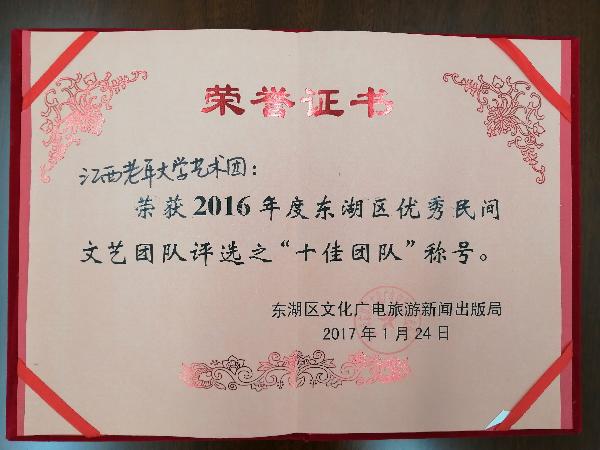 荣誉证书
江西老年大学艺术团：
荣获2016年度东湖区优秀民间
文艺团队评选之“十佳团队”称号。
东湖区文化广电旅游新闻出版局
2017年1月24日